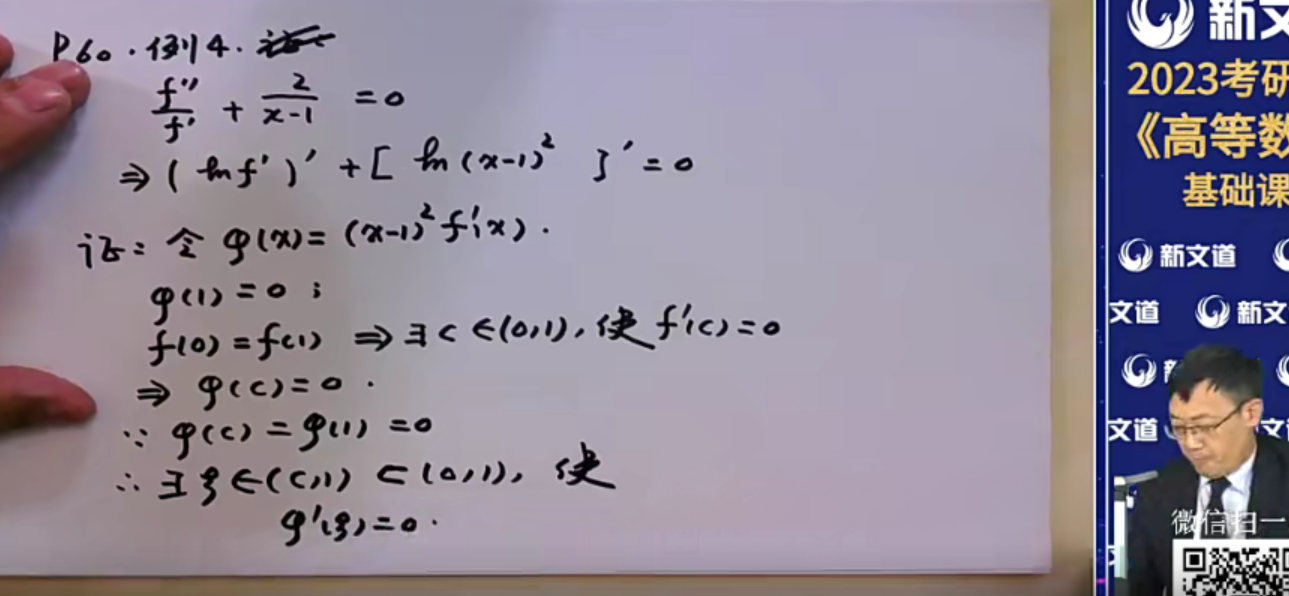 P60. 例4.
f''/f' + 2/(x-1) = 0
⇒ (ln f')' + [ ln (x-1)² ]' = 0
证: 令 φ(x) = (x-1)² f'(x).
φ(1) = 0;
f(0) = f(1) ⇒ ∃ c ∈ (0,1), 使 f'(c) = 0
⇒ φ(c) = 0.
∵ φ(c) = φ(1) = 0
∴ ∃ ξ ∈ (c,1) ⊂ (0,1), 使
φ'(ξ) = 0.
新文
2023考研
《高等数
基础课
新文道
文道 新文
新
文道 文道
微信扫一